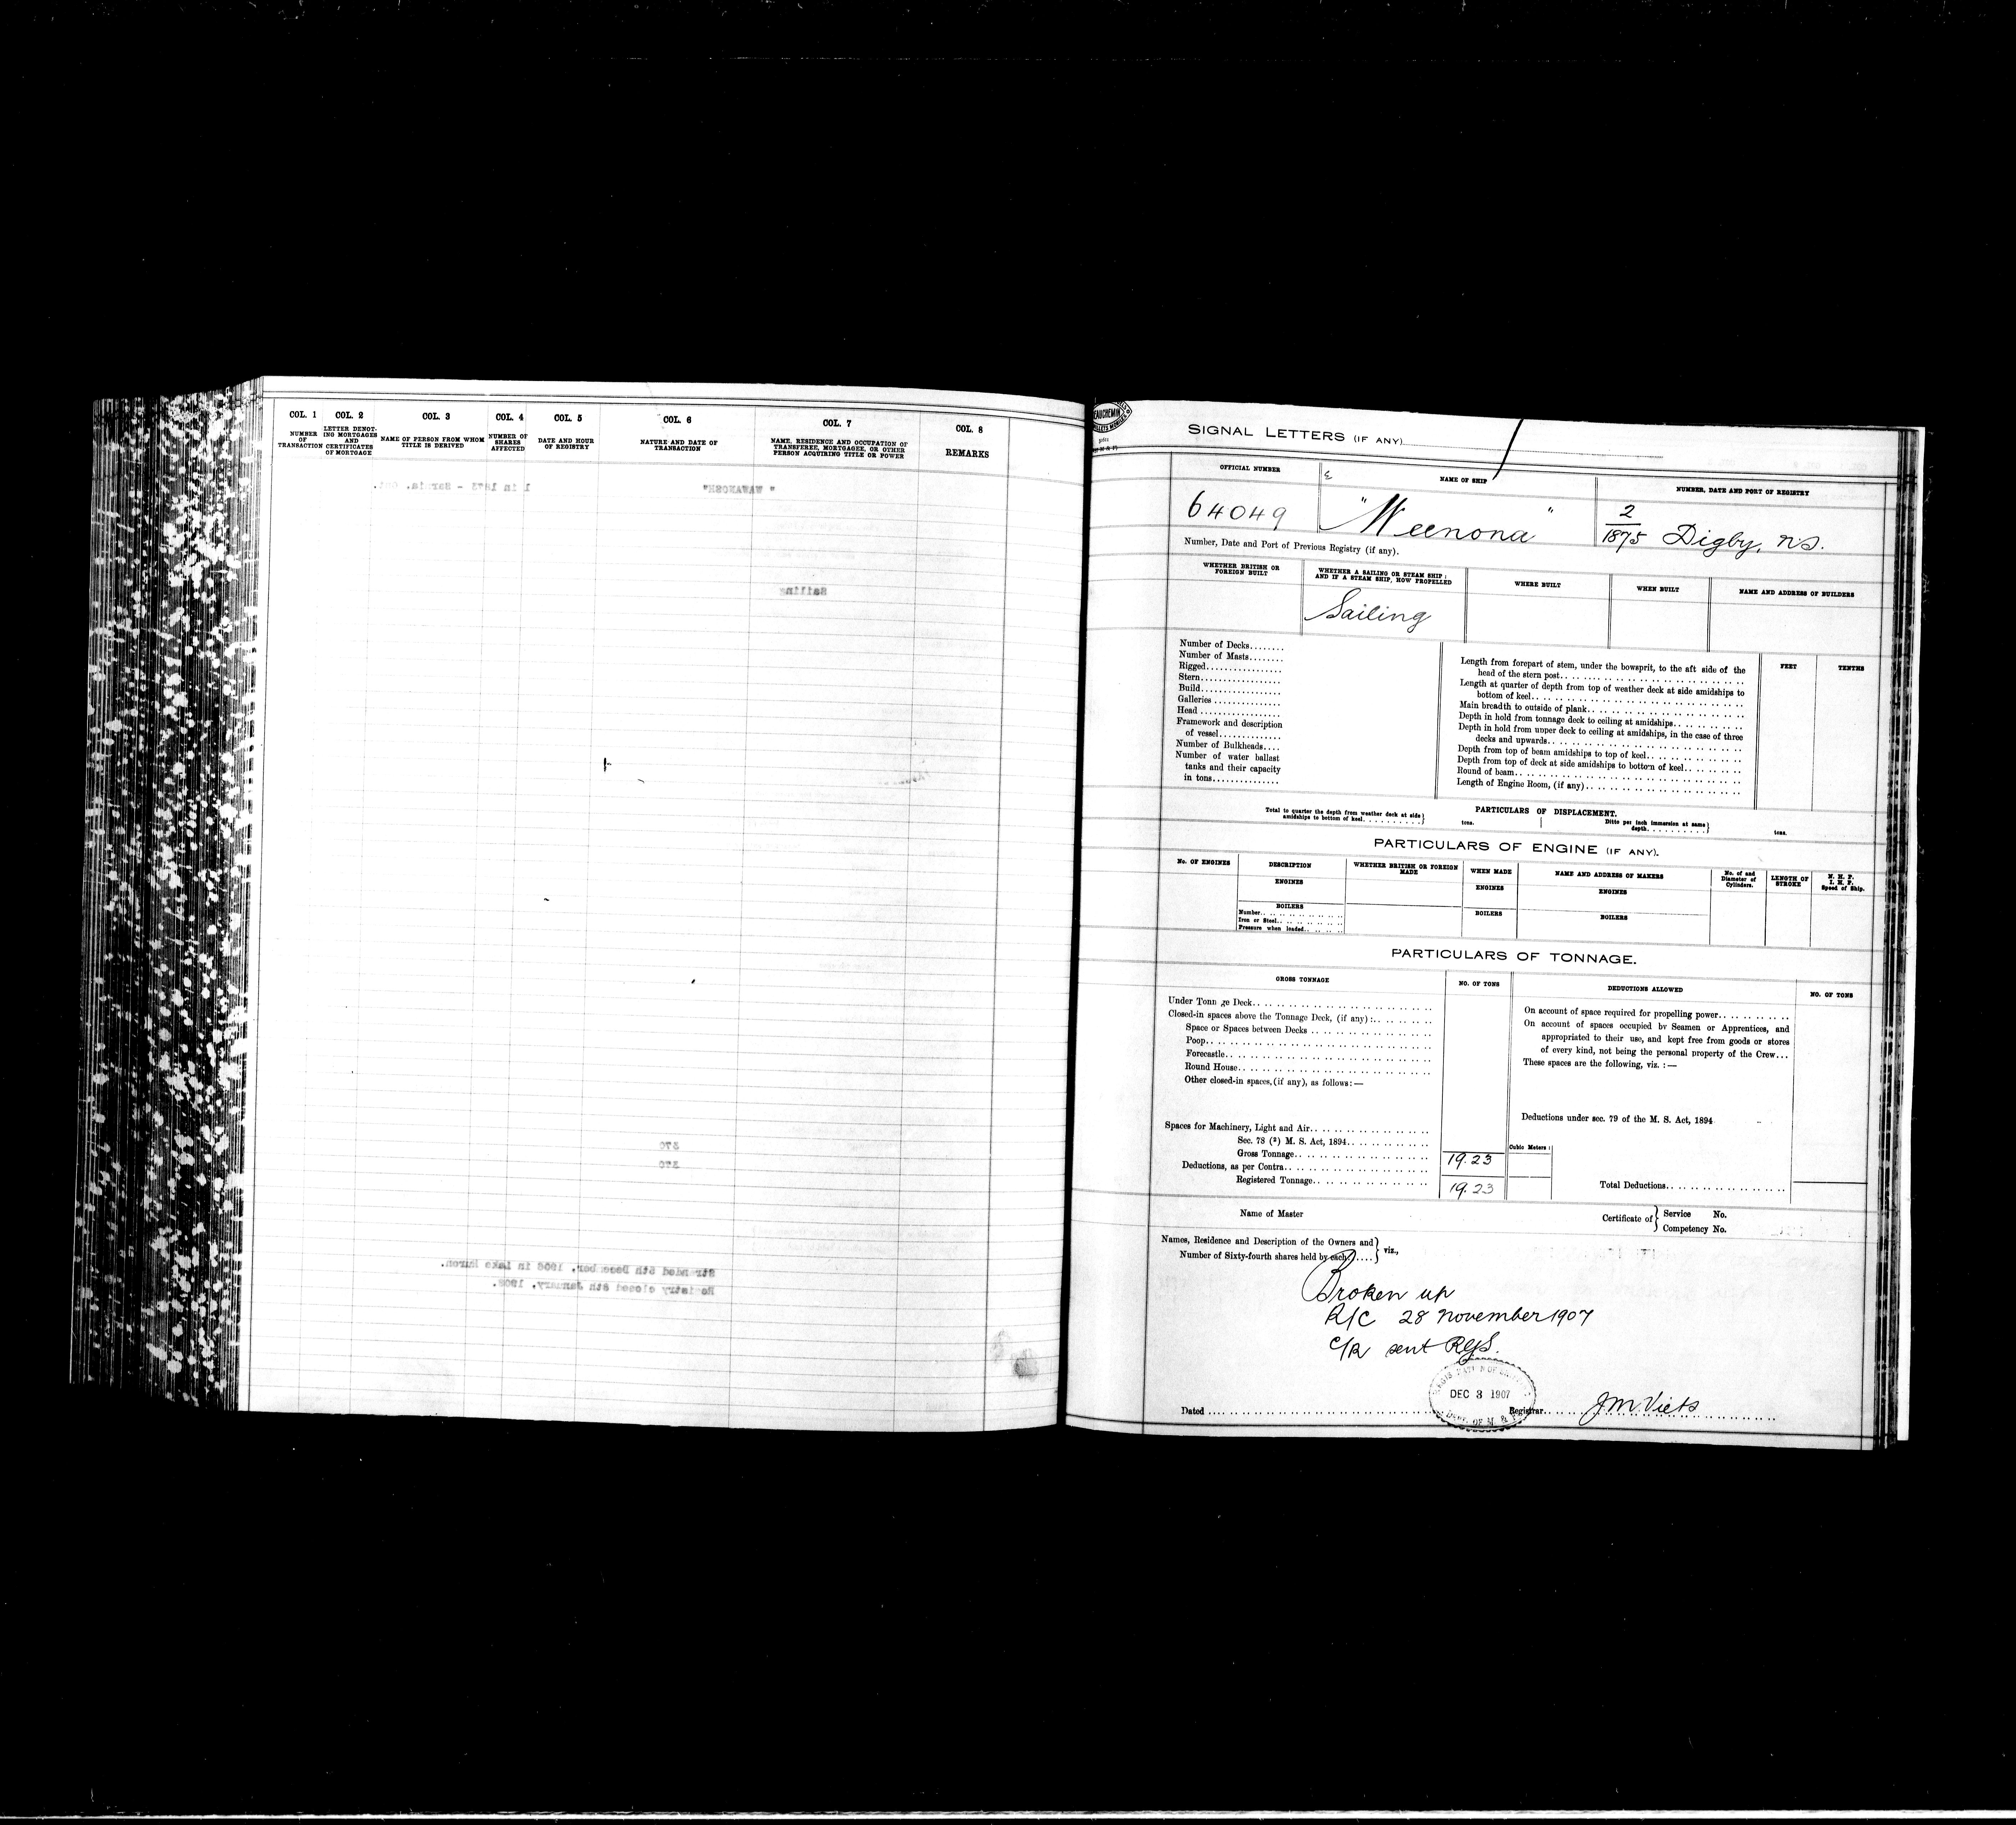 COL. 1 COL. 2 COL. 3 COL. 4 COL. 5 COL. 6 COL. 7 COL. 8
NUMBER OF TRANSACTION
LETTER DENOTING MORTGAGES AND CERTIFICATES OF MORTGAGE
NAME OF PERSON FROM WHOM TITLE IS DERIVED
NUMBER OF SHARES AFFECTED
DATE AND HOUR OF REGISTRY
NATURE AND DATE OF TRANSACTION
NAME, RESIDENCE AND OCCUPATION OF TRANSFEREE, MORTGAGEE, OR OTHER PERSON ACQUIRING TITLE OR POWER
REMARKS
1 in 1873 - Sarnia. Ont.
Sailing
370
370
Stranded 5th December, 1906 in Lake Huron.
SIGNAL LETTERS (IF ANY)
OFFICIAL NUMBER
NAME OF SHIP
NUMBER, DATE AND PORT OF REGISTRY
64049
"Weenona"
2/1875 Digby, N.S.
Number, Date and Port of Previous Registry (if any).
WHETHER BRITISH OR FOREIGN BUILT
WHETHER A SAILING OR STEAM SHIP; AND IF A STEAM SHIP, HOW PROPELLED
WHERE BUILT
WHEN BUILT
NAME AND ADDRESS OF BUILDERS
Sailing
Number of Decks........
Number of Masts........
Rigged.................
Stern..................
Build..................
Galleries ...............
Head ..................
Framework and description
of vessel..............
Number of Bulkheads....
Number of water ballast
tanks and their capacity
in tons...............
FEET TENTHS
Length from forepart of stem, under the bowsprit, to the aft side of the
head of the stern post..
Length at quarter of depth from top of weather deck at side amidships to
bottom of keel..
Main breadth to outside of plank..
Depth in hold from tonnage deck to ceiling at amidships..
Depth in hold from upper deck to ceiling at amidships, in the case of three
decks and upwards..
Depth from top of beam amidships to top of keel..
Depth from top of deck at side amidships to bottom of keel..
Round of beam..
Length of Engine Room, (if any)..
PARTICULARS OF DISPLACEMENT.
Total to quarter the depth from weather deck at side amidships to bottom of keel.......... tons.
Ditto per inch immersion at same depth.......... tons.
PARTICULARS OF ENGINE (IF ANY).
No. OF ENGINES
DESCRIPTION
WHETHER BRITISH OR FOREIGN MADE
WHEN MADE
NAME AND ADDRESS OF MAKERS
No. of and Diameter of Cylinders.
LENGTH OF STROKE
N. H. P. I. H. P. Speed of Ship.
ENGINES ENGINES ENGINES
BOILERS BOILERS BOILERS
Number..
Iron or Steel..
Pressure when loaded..
PARTICULARS OF TONNAGE.
GROSS TONNAGE
NO. OF TONS
DEDUCTIONS ALLOWED
NO. OF TONS
Under Tonn ge Deck..
Closed-in spaces above the Tonnage Deck, (if any) :..
Space or Spaces between Decks ..
Poop..
Forecastle..
Round House..
Other closed-in spaces, (if any), as follows: —
Spaces for Machinery, Light and Air..
Sec. 78 (2) M. S. Act, 1894..
Gross Tonnage.. 19.23
Deductions, as per Contra..
Registered Tonnage.. 19.23
Cubic Meters :
On account of space required for propelling power..
On account of spaces occupied by Seamen or Apprentices, and
appropriated to their use, and kept free from goods or stores
of every kind, not being the personal property of the Crew...
These spaces are the following, viz. : —
Deductions under sec. 79 of the M. S. Act, 1894
Total Deductions..
Name of Master
Certificate of
Service No.
Competency No.
Names, Residence and Description of the Owners and
Number of Sixty-fourth shares held by each .... viz.,
Broken up
R/C 28 November 1907
C/R sent RGS.
DEC 3 1907
DEPT. OF M. & F.
Dated
Registrar
J M Viets